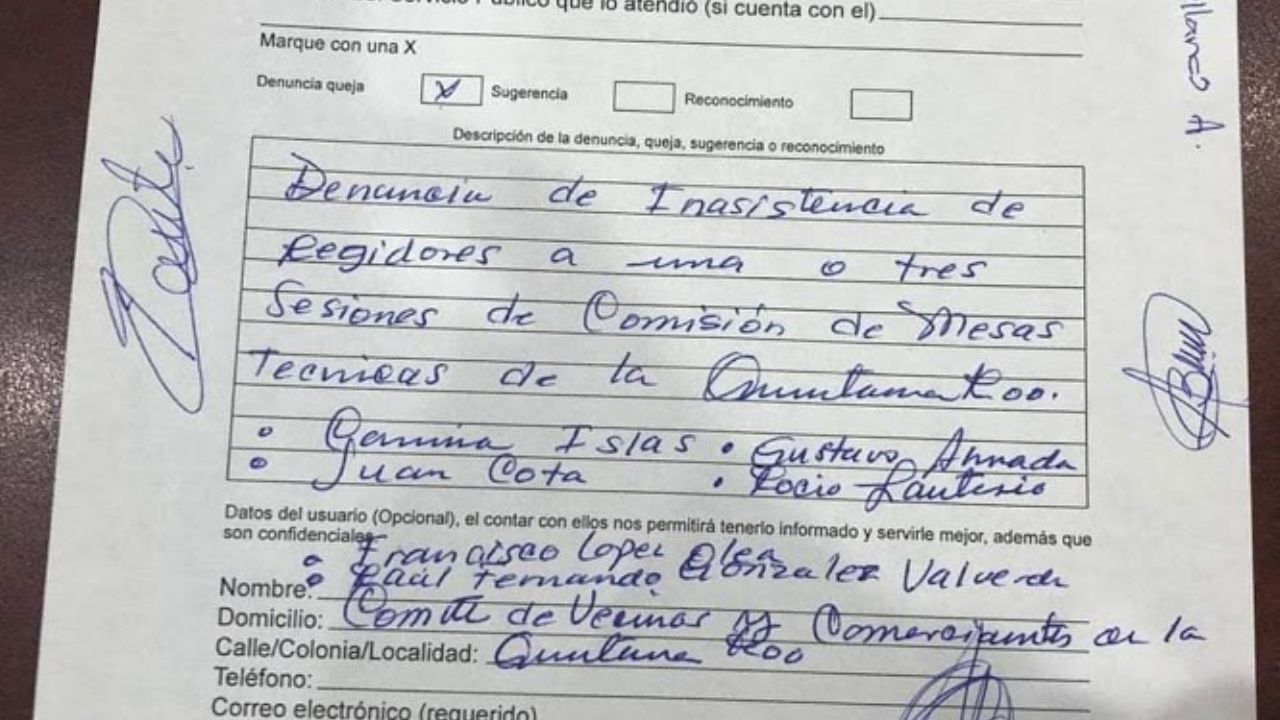 Servicio Público que lo atendió (si cuenta con el)
Marque con una X
Denuncia queja X Sugerencia Reconocimiento
Descripción de la denuncia, queja, sugerencia o reconocimiento
Denuncia de Inasistencia de
Regidores a una o tres
Sesiones de Comisión de Mesas
Tecnicas de la Quintana Roo.
• Gemma Islas • Gustavo Armada
• Juan Cota • Rocio
Datos del usuario (Opcional), el contar con ellos nos permitirá tenerlo informado y servirle mejor, además que
son confidenciales
• Francisco Lopez Olea
• Raúl Fernando Gonzalez Valverde
Nombre:
Domicilio: Comite de Vecinos y Comerciantes de la
Calle/Colonia/Localidad: Quintana Roo
Teléfono:
Correo electrónico (requerido)